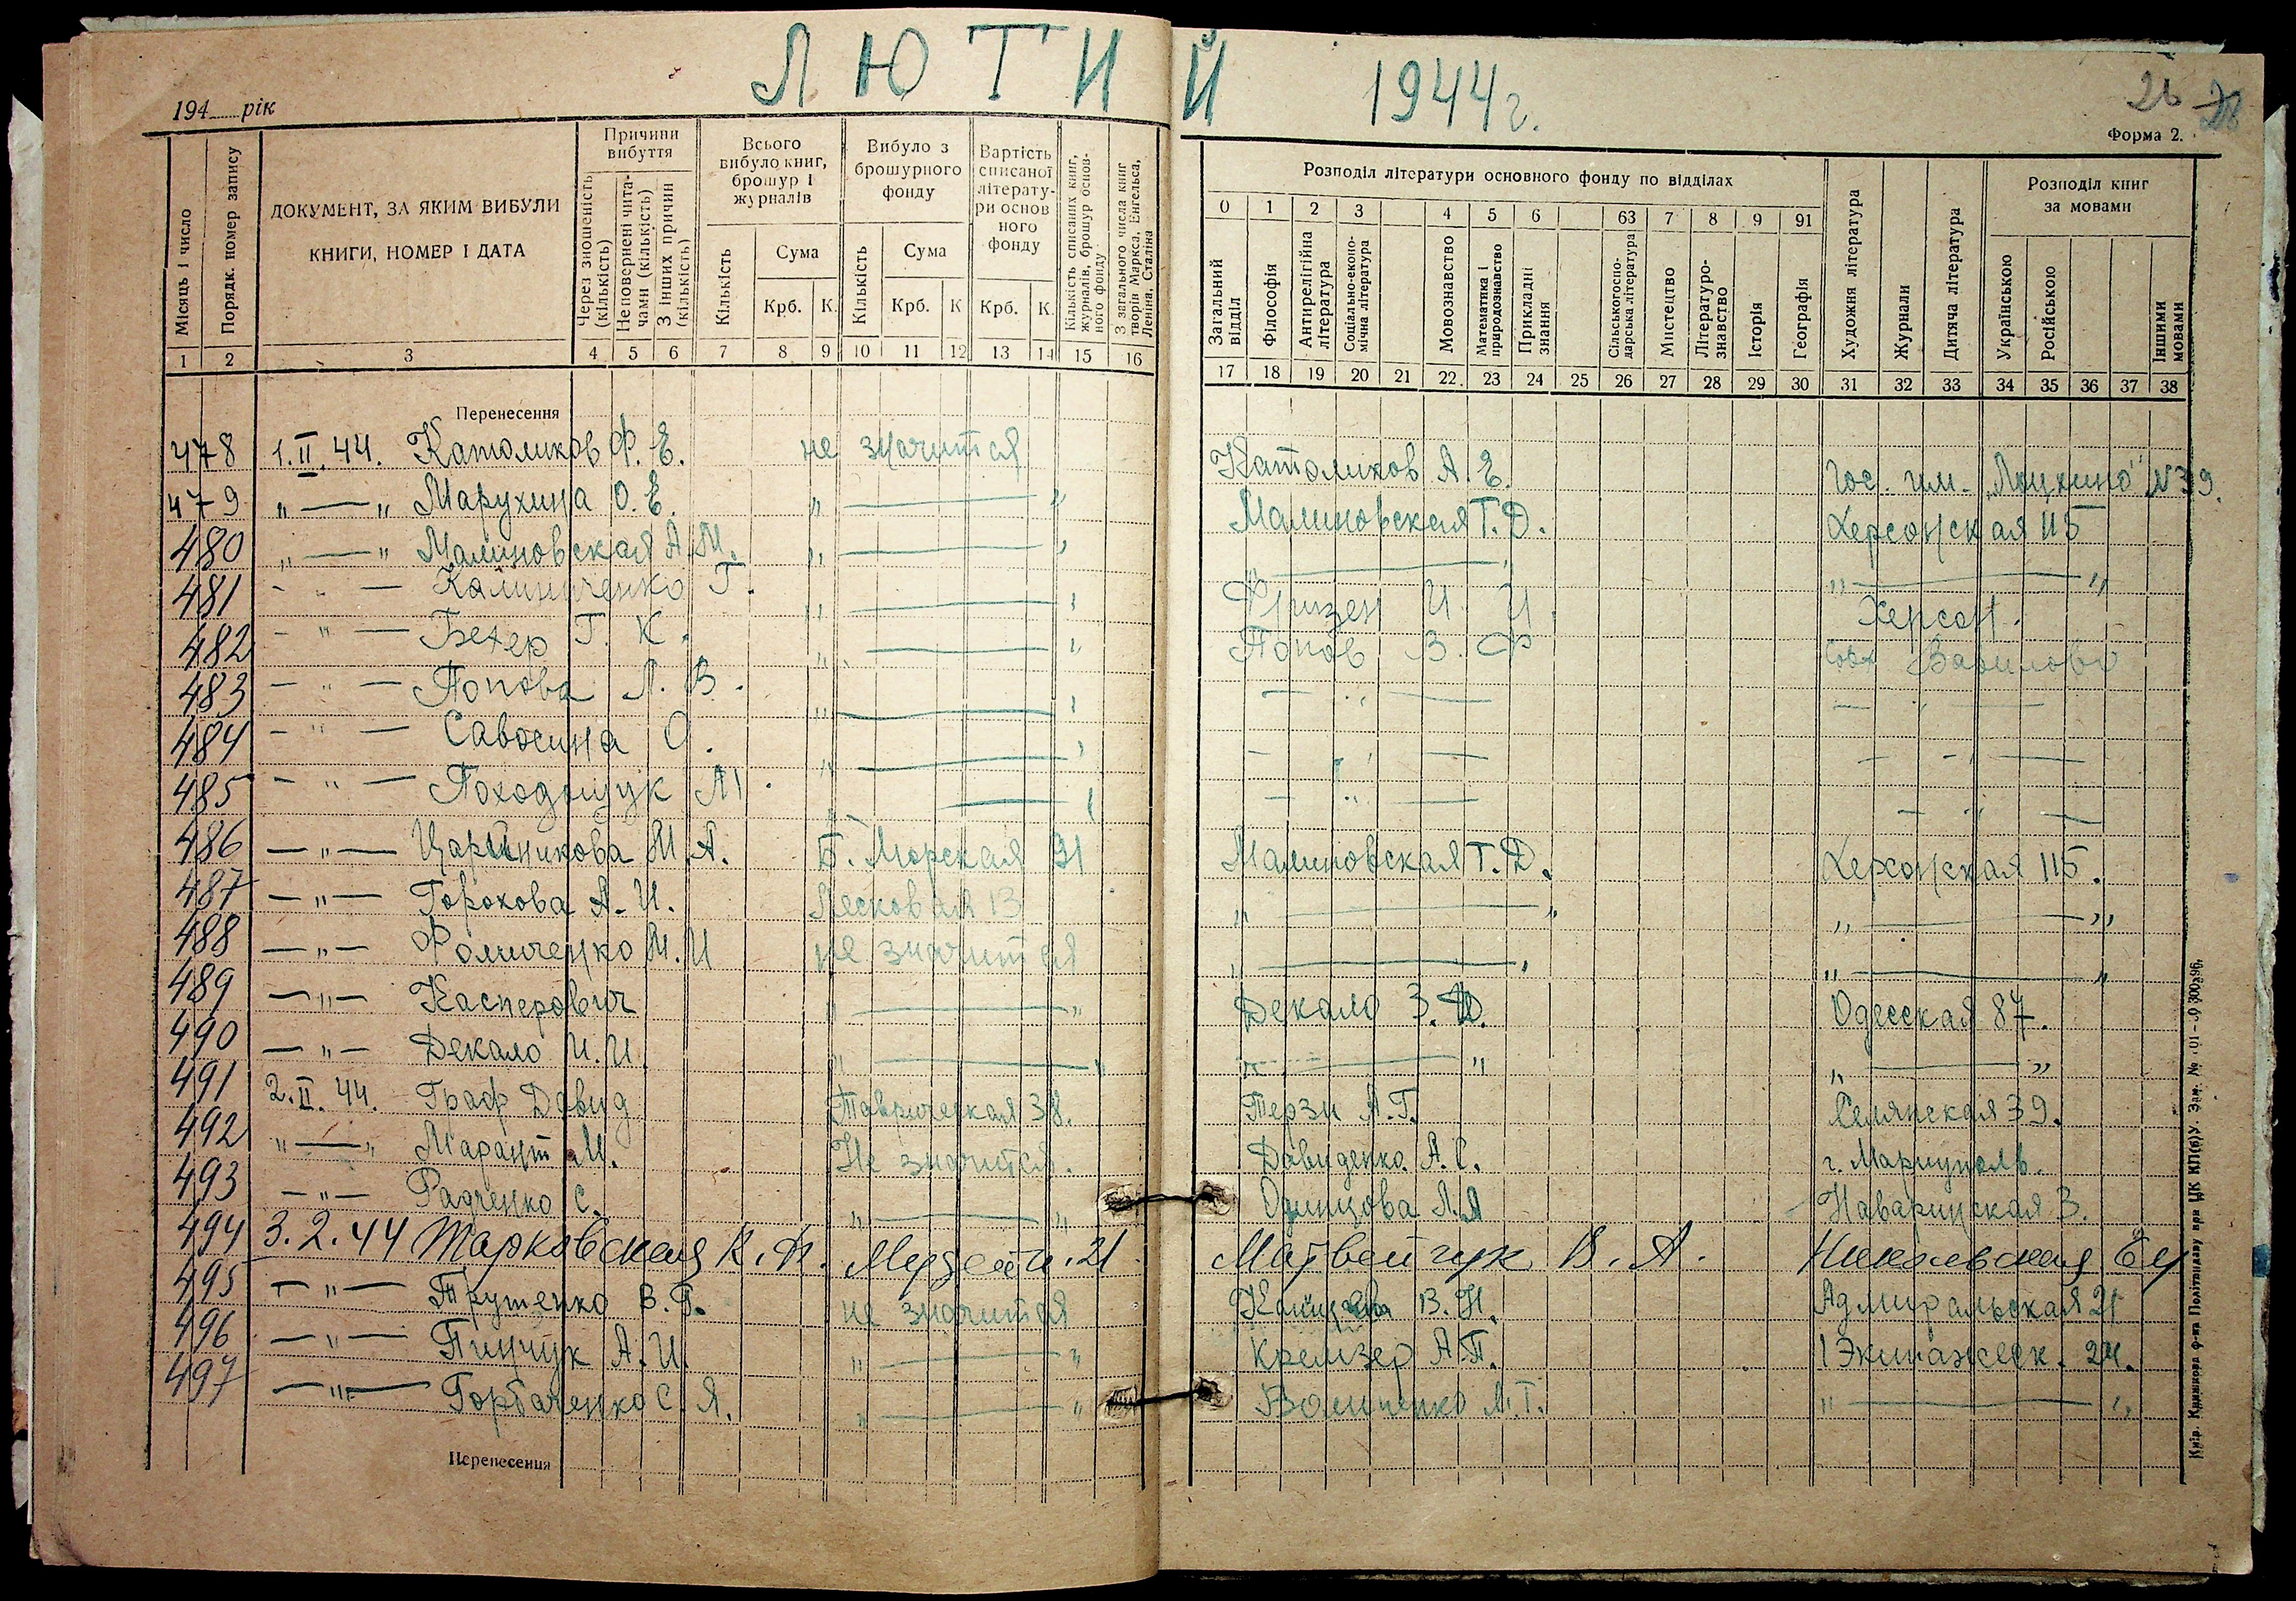 ЛЮТИЙ 1944 г.
26
194 рік
Форма 2.
Місяць і число
Порядк. номер запису
ДОКУМЕНТ, ЗА ЯКИМ ВИБУЛИ КНИГИ, НОМЕР І ДАТА
Причини вибуття
Через зношеність (кількість)
Неповернені читачами (кількість)
З інших причин (кількість)
Всього вибуло книг, брошур і журналів
Кількість
Сума
Крб. К.
Вибуло з брошурного фонду
Кількість
Сума
Крб. К
Вартість списаної літератури основного фонду
Крб. К.
Кількість списаних книг, журналів, брошур основного фонду
З загального числа книг творів Маркса, Енгельса, Леніна, Сталіна
Розподіл літератури основного фонду по відділах
0 1 2 3 4 5 6 63 7 8 9 91
Загальний відділ
Філософія
Антирелігійна література
Соціально-економічна література
Мовознавство
Математика і природознавство
Прикладні знання
Сільськогосподарська література
Мистецтво
Літературознавство
Історія
Географія
Художня література
Журнали
Дитяча література
Розподіл книг за мовами
Українською
Російською
Іншими мовами
1 2 3 4 5 6 7 8 9 10 11 12 13 14 15 16
17 18 19 20 21 22 23 24 25 26 27 28 29 30 31 32 33 34 35 36 37 38
Перенесення
478 1.II.44. Католиков Ф. Е. не значится Католиков А. Е. Гос. им. №39.
479 „ — „ Марухина О. Е. „ — „ Малиновская Т. Д. Херсонская 115
480 „ — „ Малиновская А. М. „ — „ „ — „ „ — „
481 — „ — Калиниченко Г. „ — „ Фризен И. И. Херсон.
482 — „ — Бехер Г. К. „ — „ Попов В. Ф
483 — „ — Попова Л. В. „ — „ — „ — — „ —
484 — „ — Савосина О. „ — „ — „ — — „ —
485 — „ — Походощук М. „ — „ — „ — — „ —
486 — „ — Царинникова М. А. Б. Морская 91 Малиновская Т. Д. Херсонская 115.
487 — „ — Горохова А. И. Песковая 13 „ — „ „ — „
488 — „ — Фомиченко М. И не значится „ — „ „ — „
489 — „ — Касперович „ — „ Декало З. И. Одесская 87.
490 — „ — Декало И. И. „ — „ „ — „ „ — „
491 2.II.44. Граф Давид Таврическая 38. Терзи А. Г. Селянская 39.
492 „ — „ Марант М. Не значится. Давиденко А. С. г. Мариуполь.
493 — „ — Радченко С. „ — „ Одинцова Л. Я Наваринская 3.
494 3.2.44 Тарковская К. И. 21 Матвейчук В. А. Никольская
495 — „ — Трушенко В. Г. не значится В. Н. Адмиральская 21
496 — „ — Пинчук А. И. „ — „ Кремзер А. П. 1 Экипажеск. 24.
497 — „ — Горбаченко С. Я. „ — „ М. Г. „ — „
Перенесення